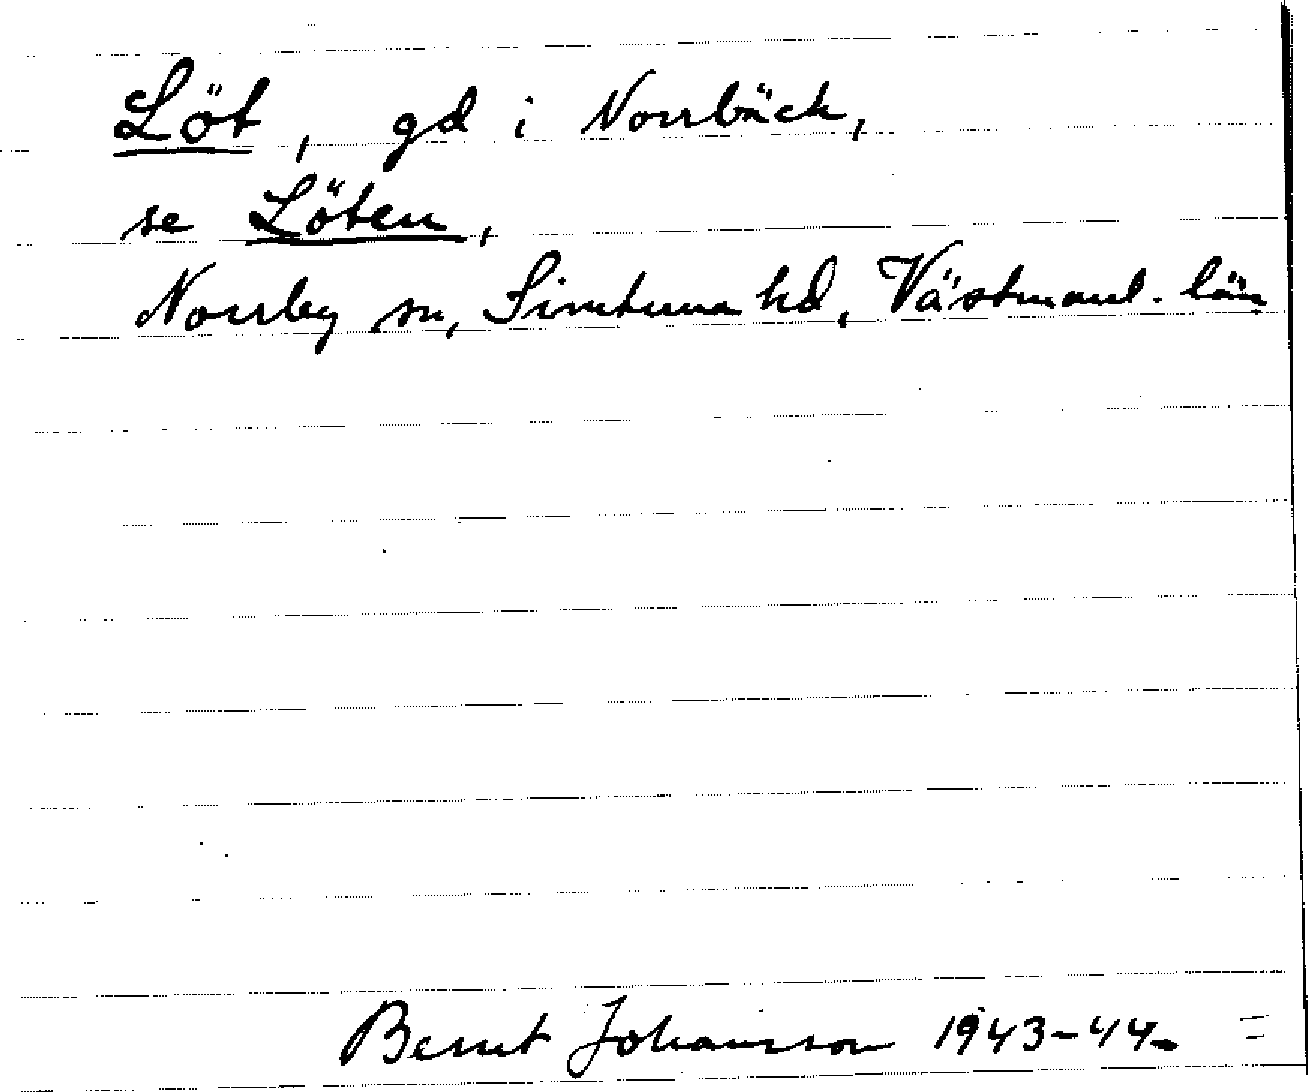 Löt, gd i Norrbäck,
se Löten,
Norrby sn, Simtuna hd, Västmanl. län
Bernt Johansson 1943-44.